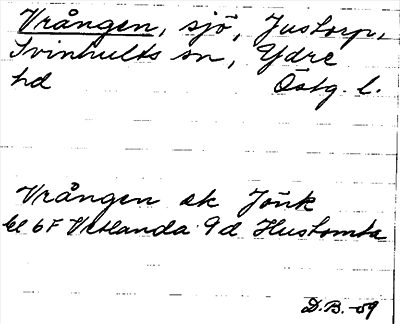 Vrången, sjö, Justorp,
Svinhults sn, Ydre
hd Östg. l.
Vrången ek Jönk
bl 6F Vetlanda 9d Hustomta
D.B. -59